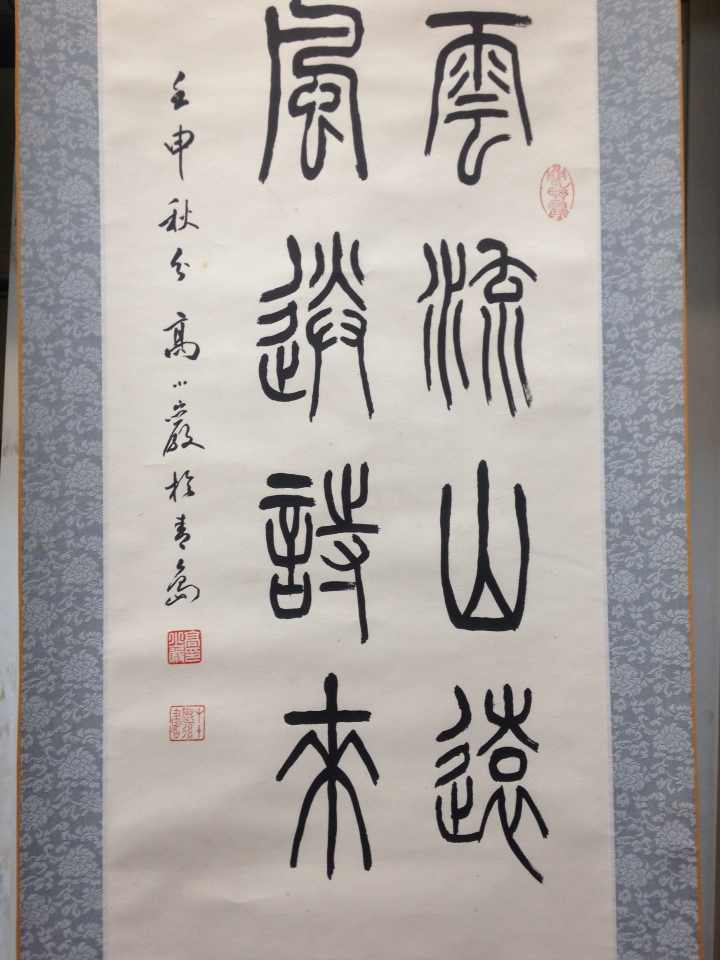 雲流山遠
風送詩来
壬申秋分高小巖於青島